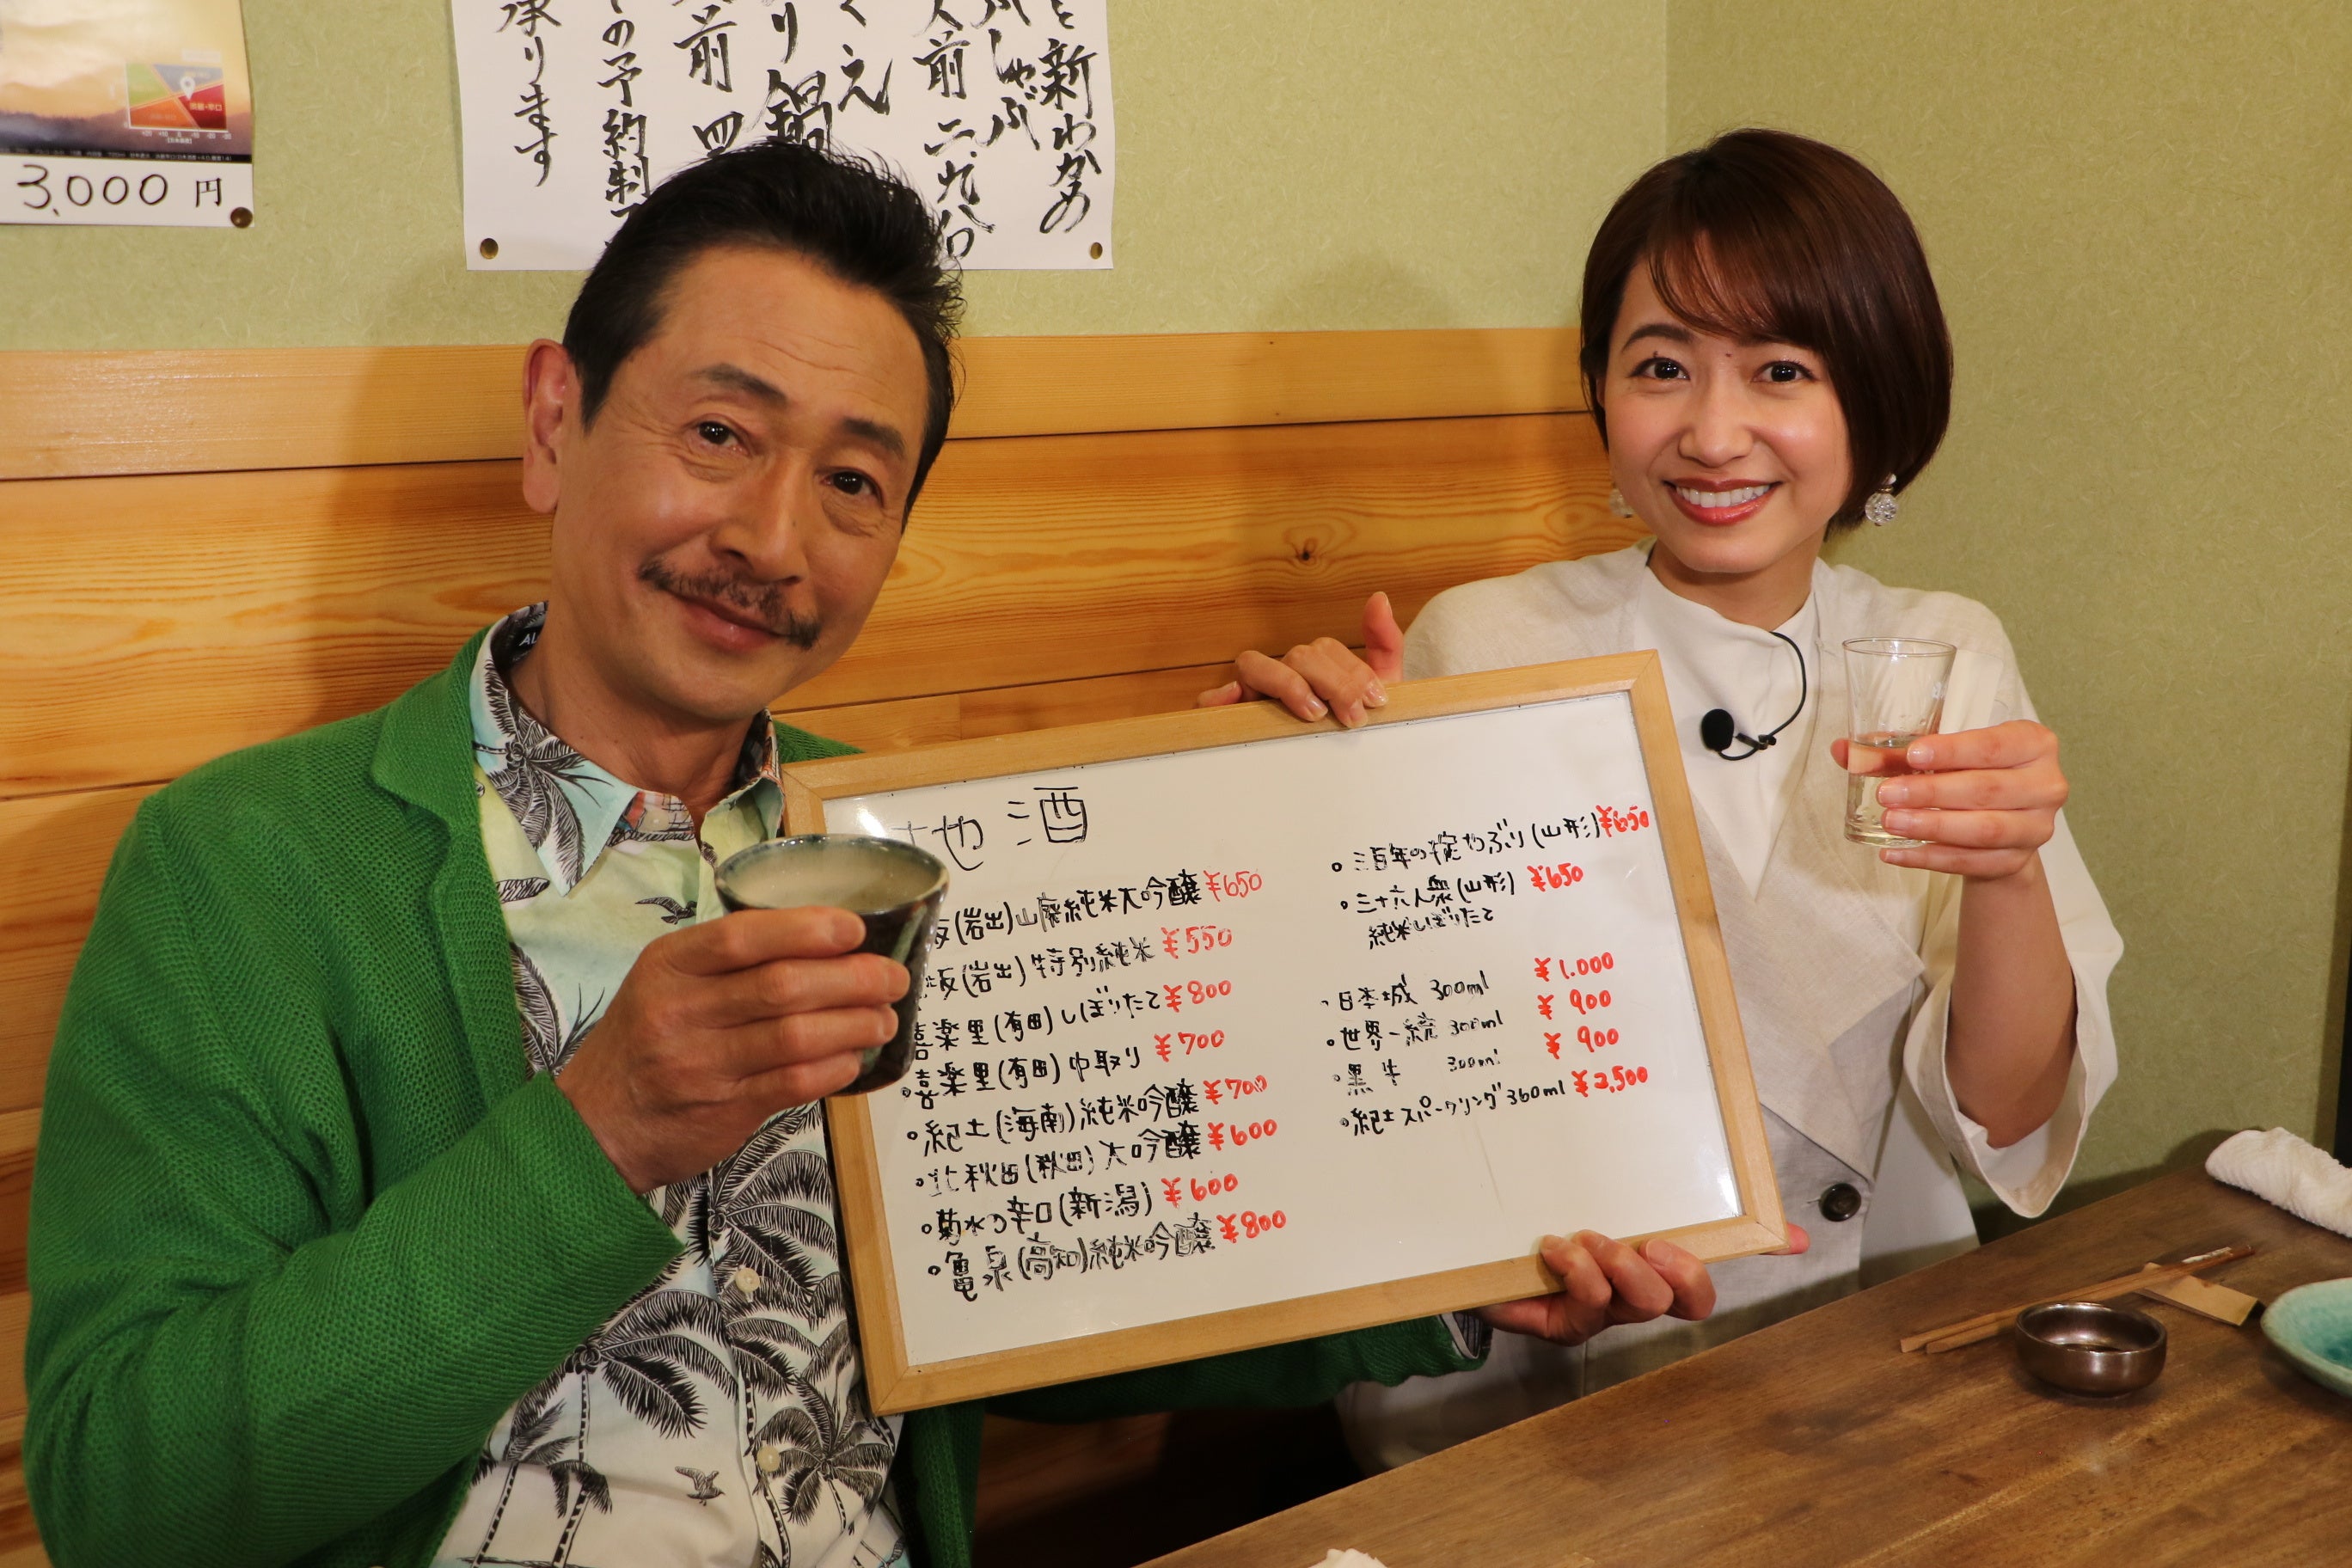 3,000 円
と新わかめ
しゃぶ
人前 二九八〇
くえ
り鍋
前 四
の予約制
承ります
地酒
坂(岩出)山廃純米大吟醸 ¥650
坂(岩出)特別純米 ¥550
喜楽里(有田)しぼりたて ¥800
・喜楽里(有田)中取り ¥700
・紀土(海南)純米吟醸 ¥700
・北秋田(秋田)大吟醸 ¥600
・菊水の辛口(新潟) ¥600
・亀泉(高知)純米吟醸 ¥800
・三百年の掟やぶり(山形) ¥650
・三十六人衆(山形) ¥650
純米しぼりたて
・日本城 300ml ¥1.000
・世界一統 300ml ¥900
・黒牛 300ml ¥900
・紀土スパークリング 360ml ¥2,500